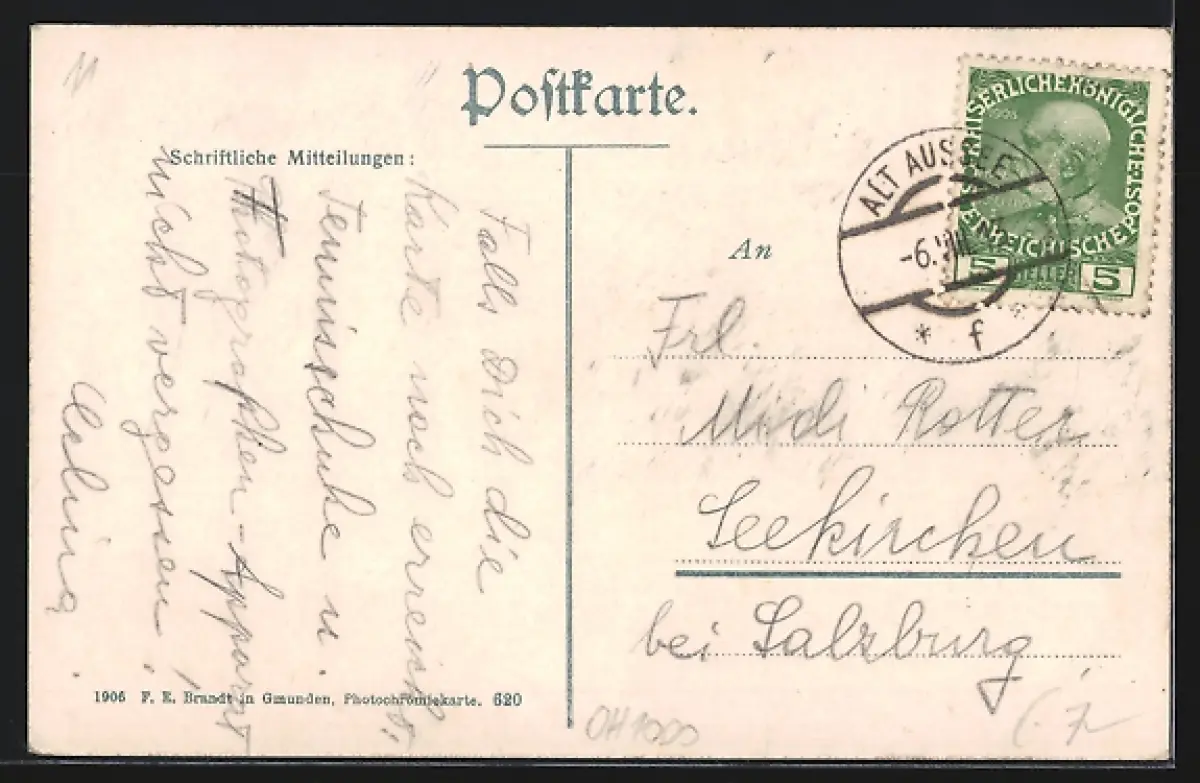 Postkarte.
Schriftliche Mitteilungen:
Falls Dich die
Karte noch erreicht:
Tennisschuhe u.
Photographen-Apparat
nicht vergessen!
1906 F. E. Brandt in Gmunden, Photochromiekarte. 620
KAISERLICHE KÖNIGLICHE ÖSTERREICHISCHE POST
1908
5 HELLER 5
ALT AUSSEE
-6. VIII
* f
An
Frl.
Midi Rotter
Seekirchen
bei Salzburg
OH1000